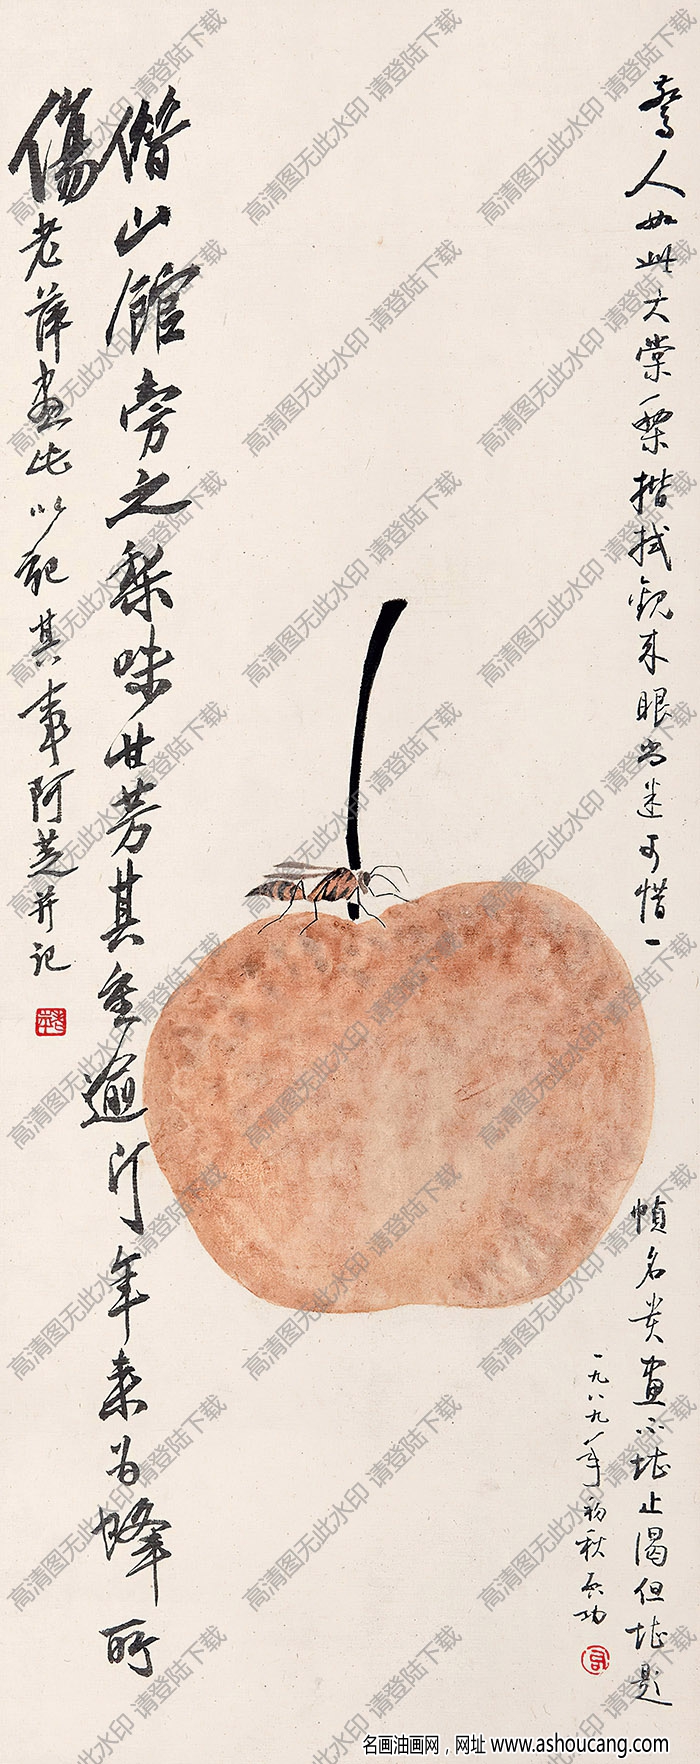 驚人如此大棠梨揩拭觀来眼尚迷可惜一
幀名貴畫不堪止渴但堪題
一九八九年初秋启功
借山館旁之梨味甘芳其重逾斤年來为蜂所
傷老萍畫此以記其事阿芝并記
高清图无此水印 请登陆下载
名画油画网，网址 www.ashoucang.com